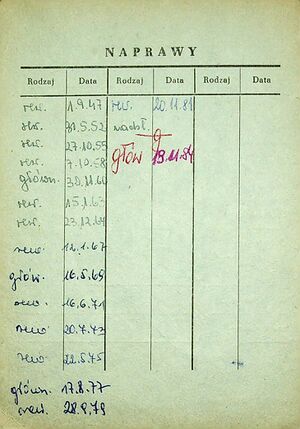 NAPRAWY
Rodzaj Data Rodzaj Data Rodzaj Data
rew. 1.9.47 rew. 20.11.81
rew. 31.5.52 nadzł.
rew. 27.10.55 głów 13.11.84
rew. 7.10.58
główn. 30.11.60
rew. 15.1.63
rew. 23.12.64
rew 12.1.67
głów. 16.5.69
rew. 16.6.71
rew 20.7.73
rew 22.5.75
główn. 17.8.77
rew. 28.9.79